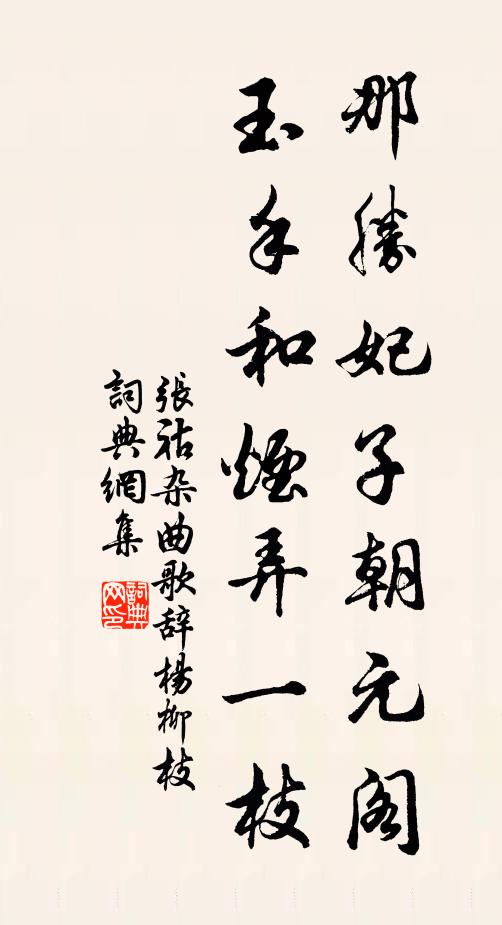 那勝妃子朝元阁
玉手和煙弄一枝
張祜杂曲歌辞楊柳枝
詞典網集
詞典网印